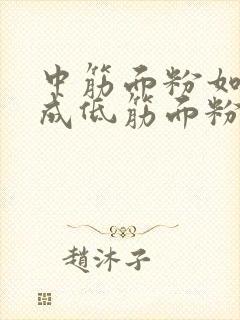 中筋面粉如
成低筋面粉
趙沐子